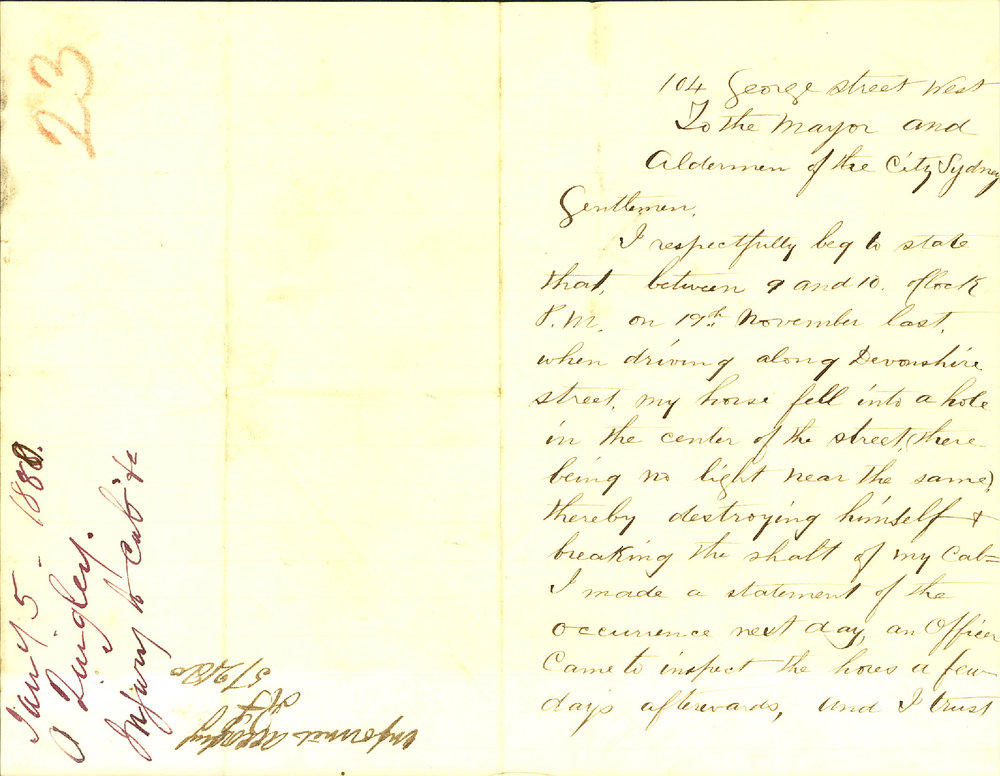 23
Jany 5 - 1880.
A Quigley.
Injury to Cab &c
5/2/80
104 George street West
To the Mayor and
Aldermen of the City Sydney
Gentlemen,
I respectfully beg to state
that, between 9 and 10. oflock
P.M. on 19th November last,
when driving along Devonshire
street, my horse fell into a hole
in the center of the street, (there
being no light near the same),
thereby destroying himself &
breaking the shaft of my Cab=
I made a statement of the
occurrence next day, an Officer
Came to inspect the hores a few
days afterwards, und I trust